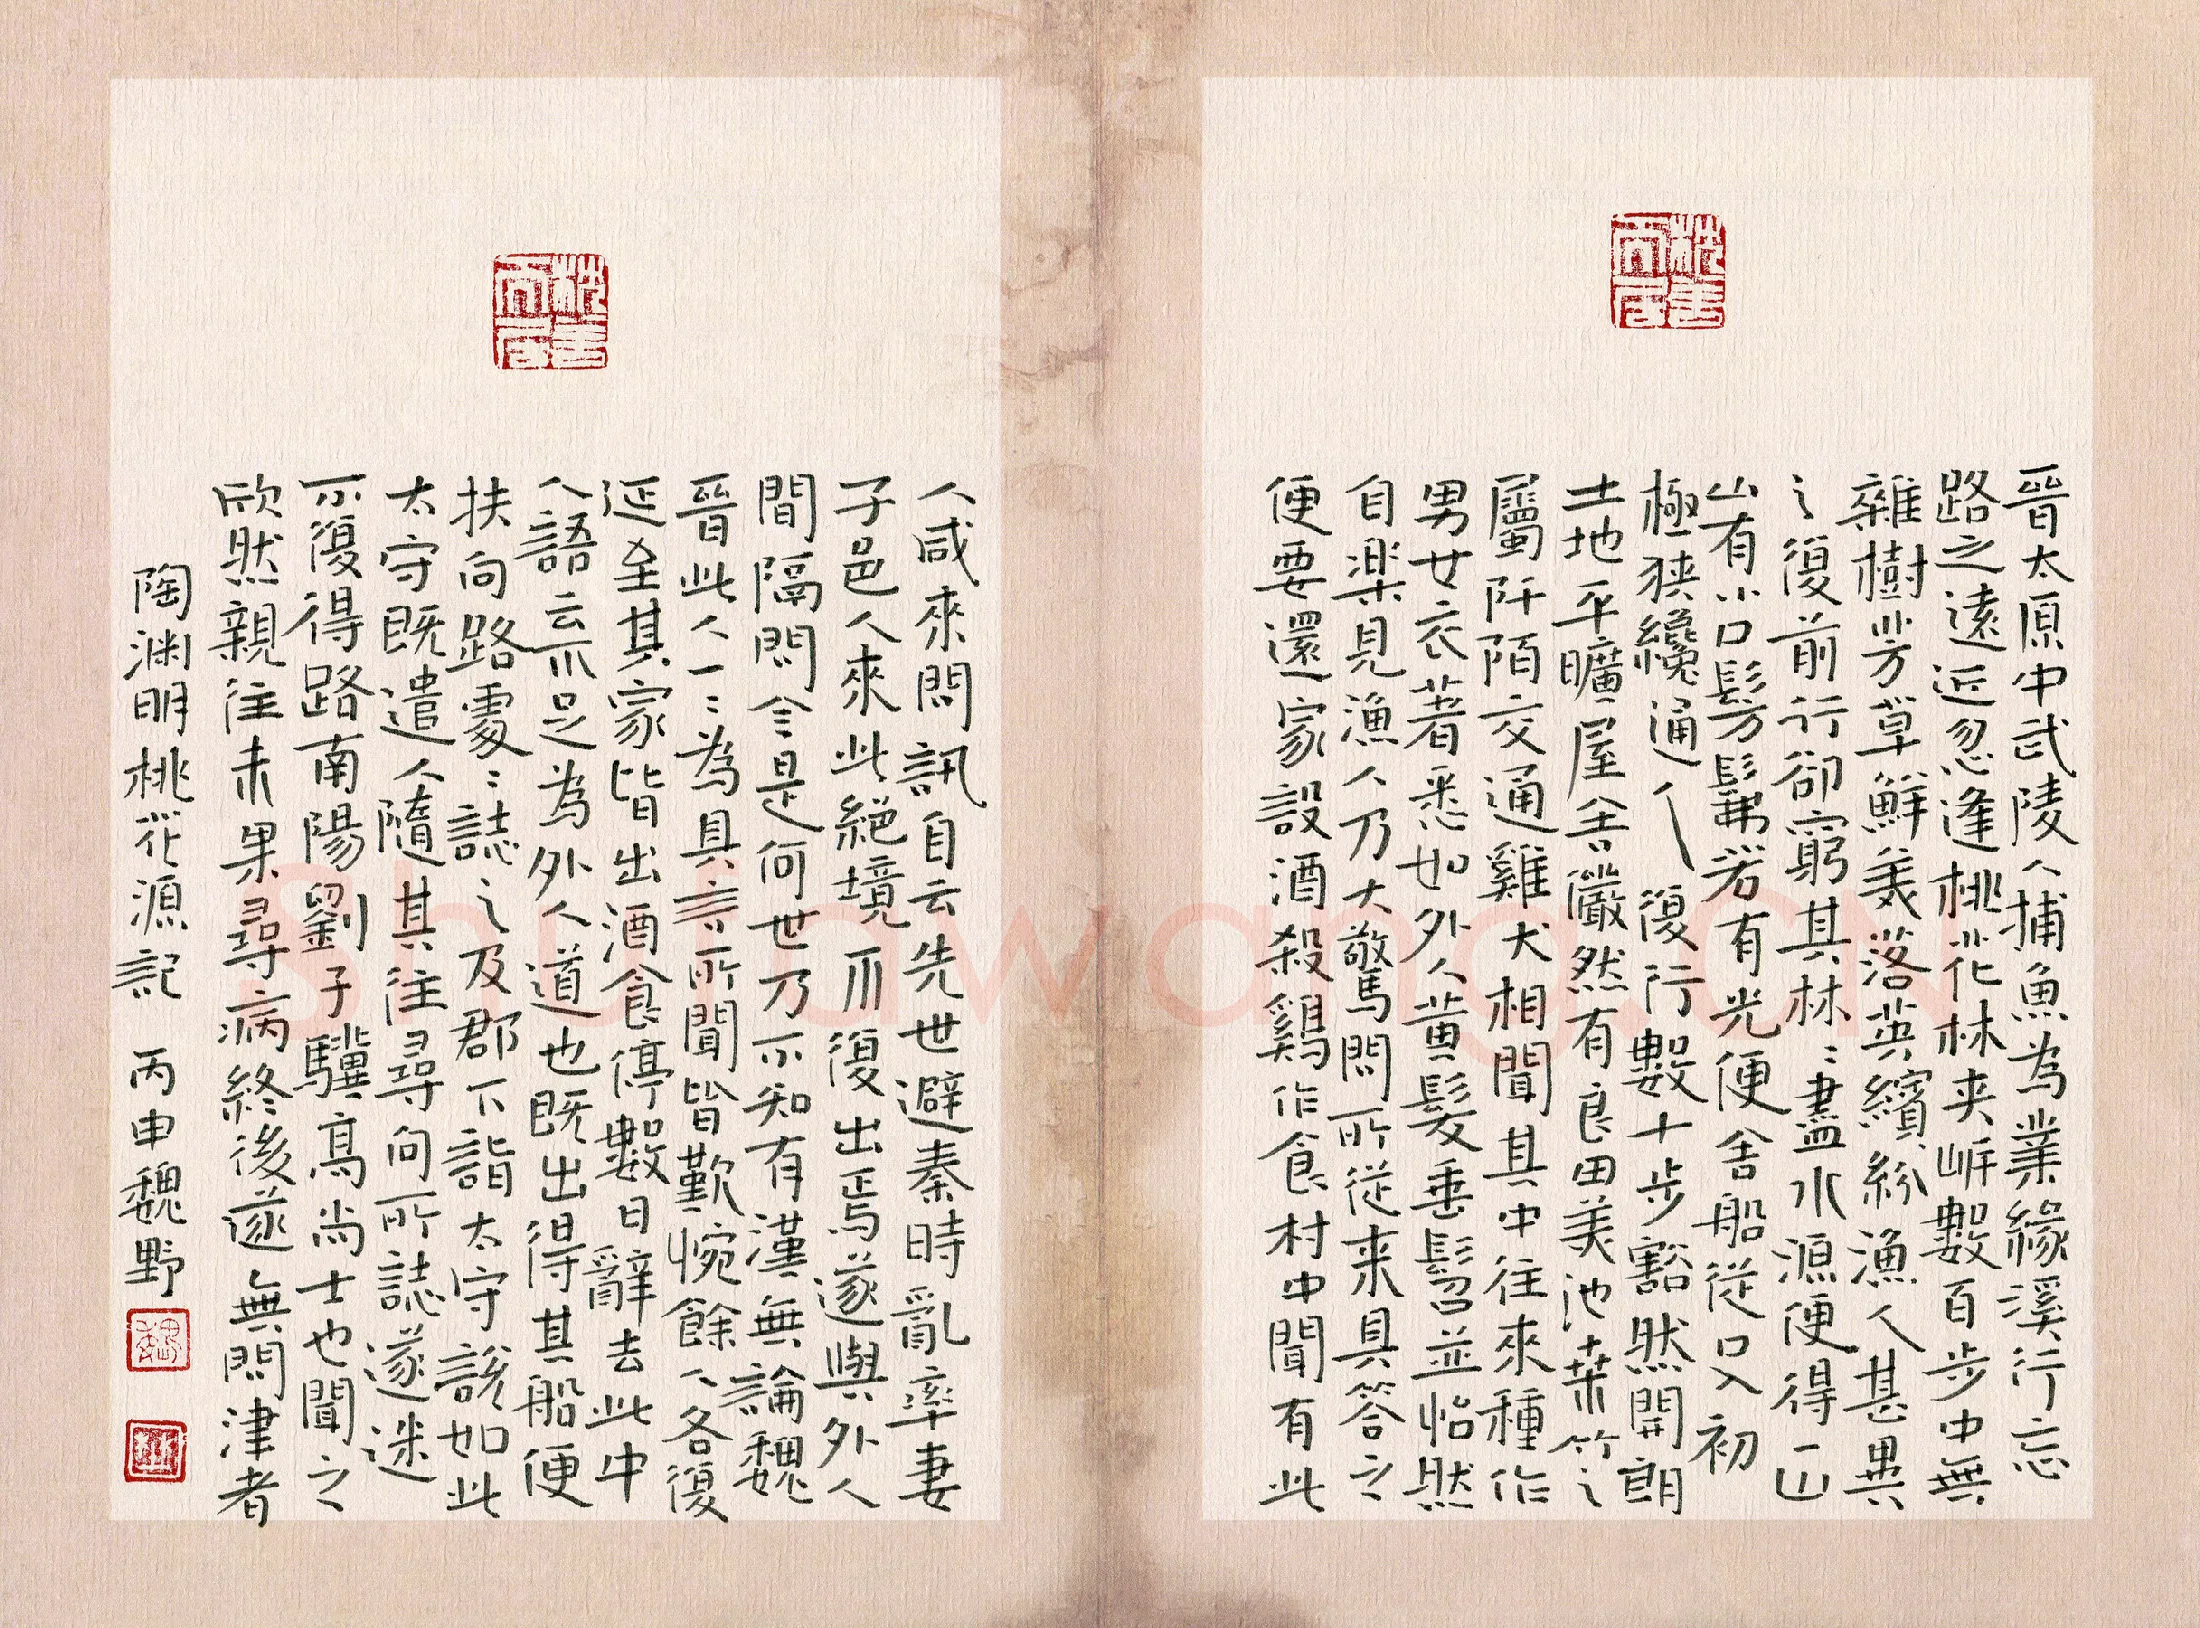 晉太原中武陵人捕魚為業緣溪行忘
路之遠近忽逢桃花林夹岸數百步中無
雜樹芳草鮮美落英繽紛漁人甚異
之復前行卻窮其林〻盡水源便得一山
山有小口髣髴若有光便舍船從口入初
極狹纔通人復行數十步豁然開朗
土地平曠屋舍儼然有良田美池桒竹之
屬阡陌交通雞犬相聞其中往來種作
男女衣著悉如外人黃髮垂髫並怡然
自楽見漁人乃大驚問所從来具答之
便要還家設酒殺鷄作食村中聞有此
人咸來問訊自云先世避秦時亂率妻
子邑人來此絕境不復出焉遂與外人
間隔問今是何世乃不知有漢無論魏
晉此人一〻為具言所聞皆歎惋餘人各復
延至其家皆出酒食停數日辭去此中
人語云不足為外人道也既出得其船便
扶向路處〻誌之及郡下詣太守說如此
太守既遣人隨其往尋向所誌遂迷
不復得路南陽劉子驥高尚士也聞之
欣然親往未果尋病終後遂無問津者
陶渊明桃花源記 丙申魏野
shufawang.CN